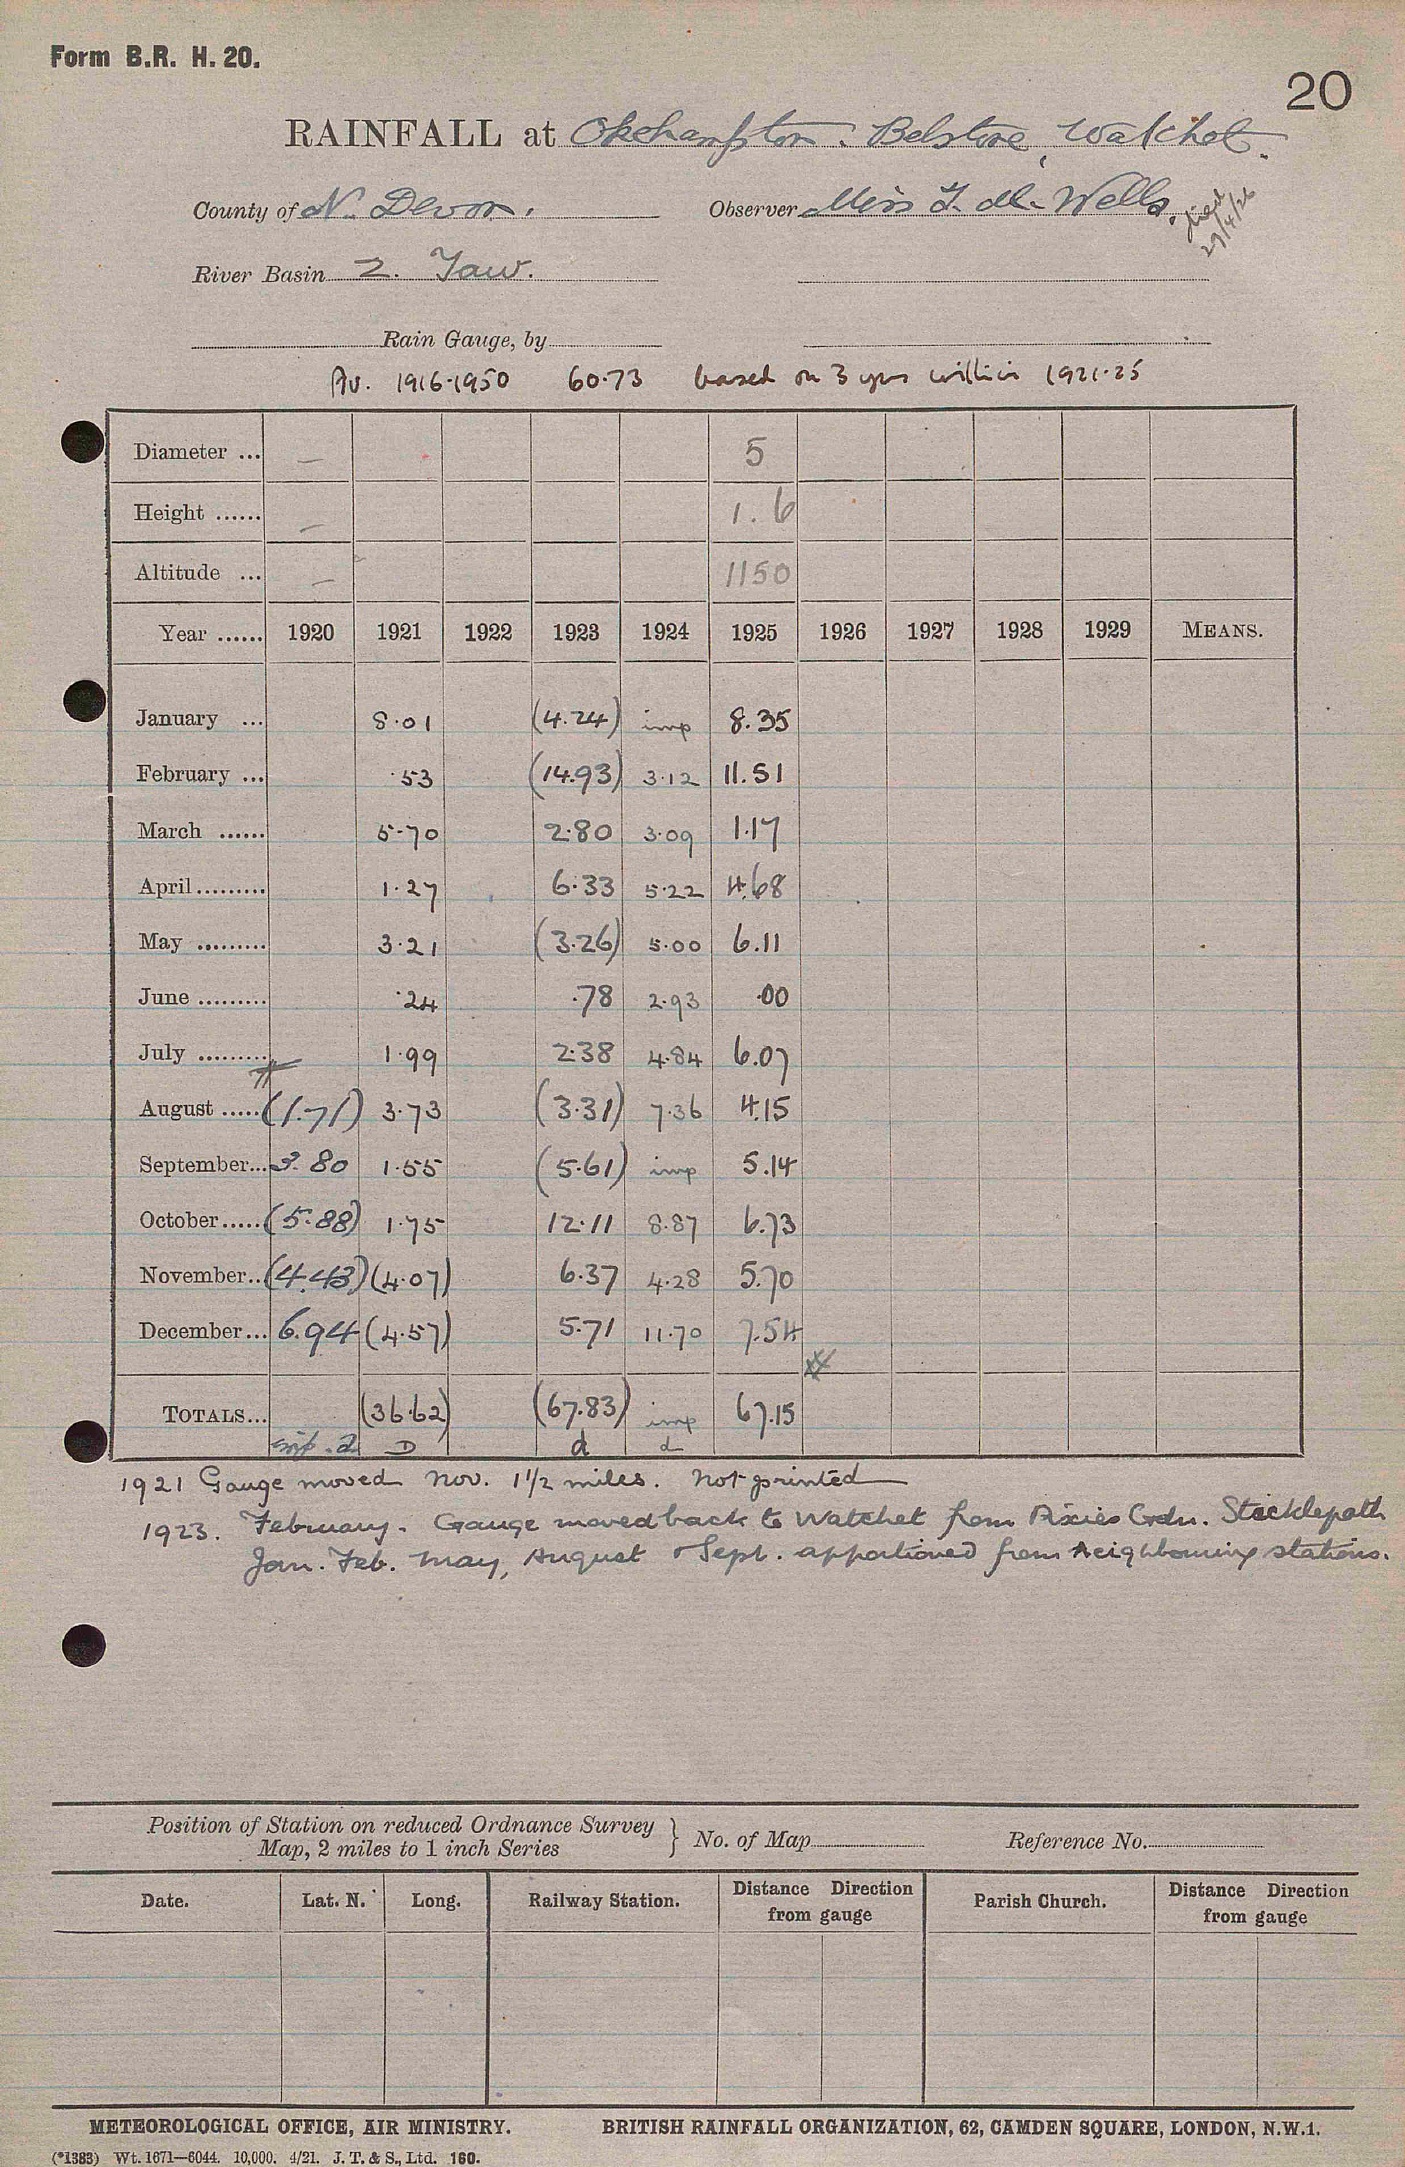 Form B.R. H. 20.
20
RAINFALL at Okehampton. Belstone, Watchet.
County of N. Devon. Observer Miss Wells. died 29/4/26
River Basin 2. Taw.
Rain Gauge, by
Av. 1916-1950 60.73 based on 3 yrs within 1921-25
Diameter ... — 5
Height ...... — 1.6
Altitude ... — 1150
Year ...... 1920 1921 1922 1923 1924 1925 1926 1927 1928 1929 MEANS.
January ... 8.01 (4.24) imp 8.35
February ... .53 (14.93) 3.12 11.51
March ...... 5.70 2.80 3.09 1.17
April ......... 1.27 6.33 5.22 4.68
May ......... 3.21 (3.26) 5.00 6.11
June ......... .24 .78 2.93 .00
July ......... 1.99 2.38 4.84 6.07
August ..... (1.71) 3.73 (3.31) 7.36 4.15
September... 3.80 1.55 (5.61) imp 5.14
October..... (5.88) 1.75 12.11 8.87 6.73
November.. (4.43) (4.07) 6.37 4.28 5.70
December... 6.94 (4.57) 5.71 11.70 7.54
TOTALS... (36.62) (67.83) imp 67.15
imp. d D d d
1921 Gauge moved Nov. 1 1/2 miles. Not printed
1923. February. Gauge moved back to Watchet from Pixies Gdn. Sticklepath
Jan. Feb. May, August & Sept. apportioned from neighbouring stations.
Position of Station on reduced Ordnance Survey
Map, 2 miles to 1 inch Series } No. of Map Reference No.
Date. Lat. N. Long. Railway Station. Distance Direction from gauge Parish Church. Distance Direction from gauge
METEOROLOGICAL OFFICE, AIR MINISTRY. BRITISH RAINFALL ORGANIZATION, 62, CAMDEN SQUARE, LONDON, N.W.1.
(*1383) Wt. 1671—6044. 10,000. 4/21. J. T. & S., Ltd. 160.